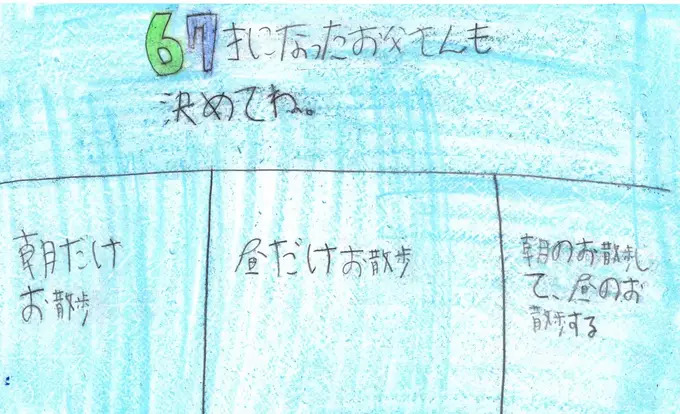 67才になったお父さんも
決めてね。
朝だけ
お散歩
昼だけお散歩
朝のお散歩し
て、昼のお
散歩する